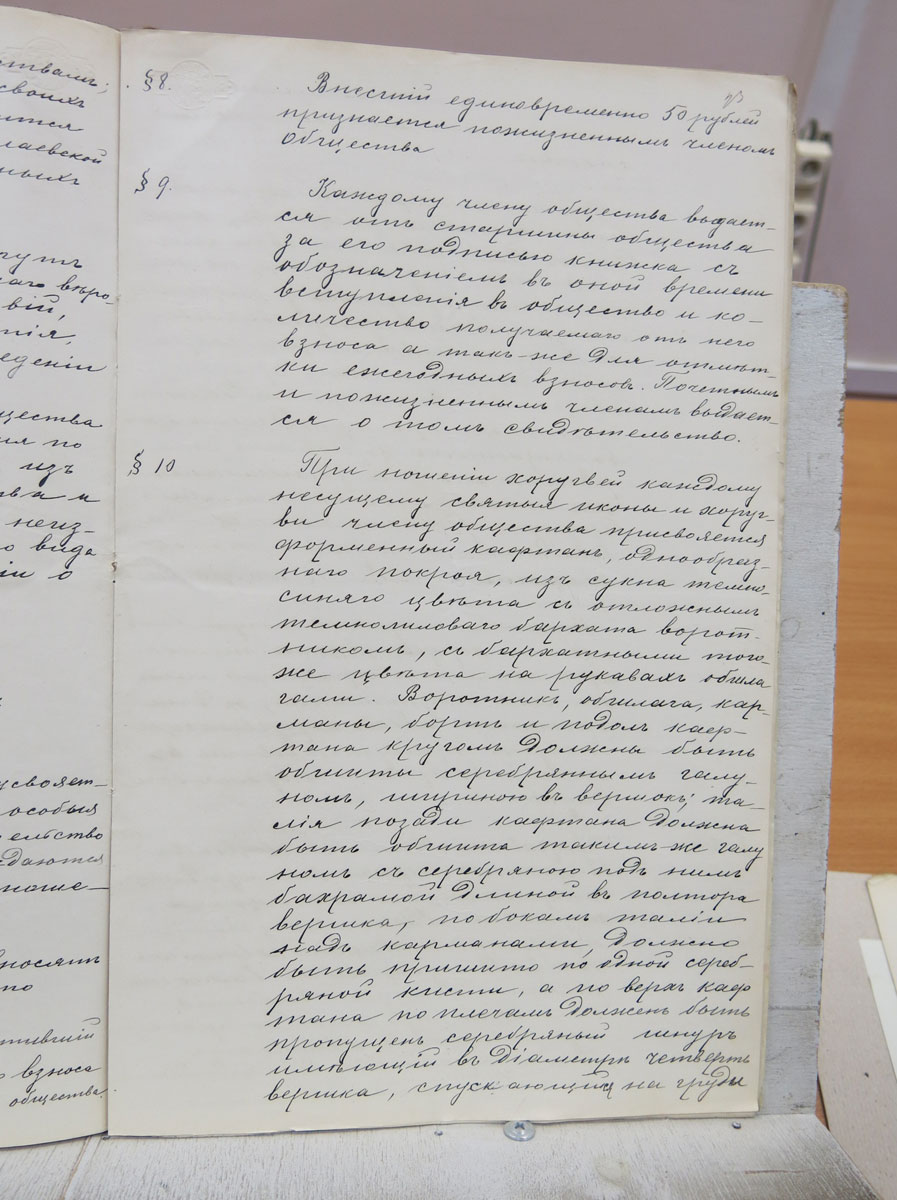 ствамъ;
своихъ
ится
лаевской
ныхъ
гутъ
каго вѣро-
вій,
нія,
ведени
щества
ия по
изъ
тва и
неиз-
о вида
іи о
усвоят-
особыя
ельство
даются
ноше-
вносятъ
по
тившій
взноса
общества.
§8. Внесшій единовременно 50 рублей
признается пожизненнымъ членомъ
Общества
§ 9. Каждому члену общества выдает-
ся отъ старшины общества
за его подписью книжка съ
обозначеніемъ въ оной времени
вступленія въ общество и ко-
личество получаемаго отъ него
взноса а такъ-же для отмѣт-
ки ежегодныхъ взносовъ. Почетнымъ
и пожизненнымъ членамъ выдает-
ся о томъ свидѣтельство.
§ 10 При ношеніи хоругвей каждому
несущему святыя иконы и хоруг-
ви члену общества присвояется
форменный кафтанъ, однообраз-
наго покроя, изъ сукна темно-
синяго цвѣта съ отложнымъ
темнолиловаго бархата ворот-
никомъ, съ бархатными того-
же цвѣта на рукавахъ обшла
гами. Воротникъ, обшлага, кар-
маны, бортъ и подолъ каф-
тана кругомъ должны быть
обшиты серебряннымъ галу-
номъ, шириною въ вершокъ; та-
лія позади кафтана должна
быть обшита такимъ-же галу
номъ съ серебряною подъ нимъ
бахрамой длиной въ полтора
вершка, по бокамъ таліи
надъ карманами, должно
быть пришито по одной сереб-
ряной кисти, а по верхъ каф
тана по плечамъ долженъ быть
пропущенъ серебряный шнуръ
имѣющій въ діаметрѣ четверть
вершка, спускающійся на груди